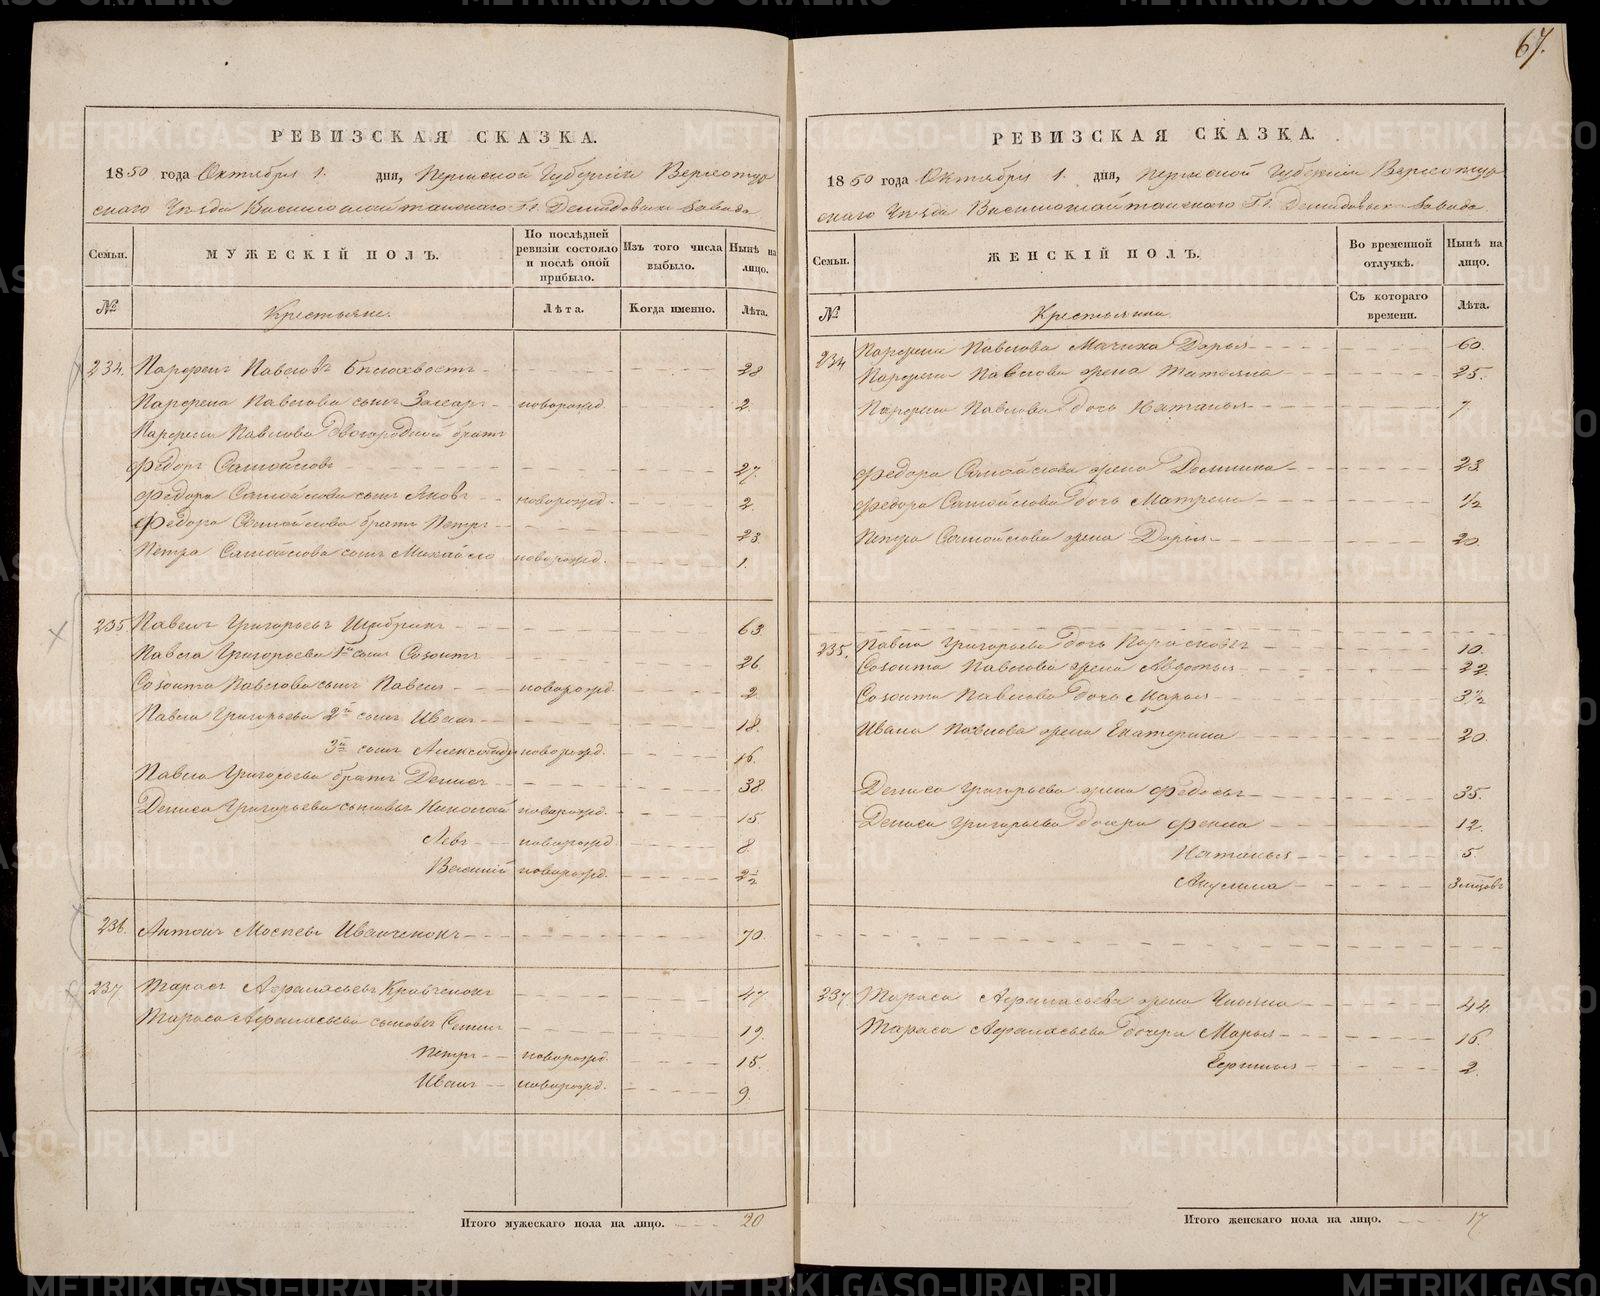 67.
РЕВИЗСКАЯ СКАЗКА.
1850 года Октября 1. дня, Пермской Губернiи Верхотур
скаго Уѣзда Висимошайтанскаго Гг. Демидовыхъ Завода
Семьи.
МУЖЕСКIЙ ПОЛЪ.
По послѣдней ревизiи состояло и послѣ оной прибыло.
Изъ того числа выбыло.
Нынѣ на лицо.
№
Крестьяне.
Лѣта.
Когда именно.
Лѣта.
234. Парфенъ Павловъ Бѣлохвостъ 28
Парфена Павлова сынъ Захаръ новорожд. 2.
Парфена Павлова двоюродной братъ
Федоръ Самойловъ 27.
Федора Самойлова сынъ Яковъ новорожд. 2.
Федора Самойлова братъ Петръ 23.
Петра Самойлова сынъ Михайло новорожд. 1.
235 Павелъ Григорьевъ 63
Павла Григорьева 1й сынъ Созонтъ 26.
Созонта Павлова сынъ Павелъ новорожд. 2
Павла Григорьева 2й сынъ Иванъ 18.
3й сынъ Александръ новорожд. 16.
Павла Григорьева братъ Денисъ 38.
Дениса Григорьева сыновья Николай новорожд. 15
Левъ новорожд. 8.
Василiй новорожд. 2½
236. Антонъ Мосѣевъ Иванченокъ 70.
237. Тарасъ Афанасьевъ Кравченокъ 47.
Тараса Афанасьева сыновья Семенъ 19.
Петръ новорожд. 15.
Иванъ новорожд. 9.
Итого мужескаго пола на лицо. 20
РЕВИЗСКАЯ СКАЗКА.
1850 года Октября 1. дня, Пермской Губернiи Верхотур
скаго Уѣзда Висимошайтанскаго Гг. Демидовыхъ Завода
Семьи.
ЖЕНСКIЙ ПОЛЪ.
Во временной отлучкѣ.
Нынѣ на лицо.
№
Крестьянки.
Съ котораго времени.
Лѣта.
234 Парфена Павлова Мачиха Дарья 60.
Парфена Павлова жена Татьяна 25.
Парфена Павлова дочь Наталья 7.
Федора Самойлова жена Домника 23.
Федора Самойлова дочь Матрена 1/2
Петра Самойлова жена Дарья 20.
235. Павла Григорьева дочь Парасковья 10.
Созонта Павлова жена Авдотья 22.
Созонта Павлова дочь Марья 3½
Ивана Павлова жена Екатерина 20.
Дениса Григорьева жена Федосья 35.
Дениса Григорьева дочери Фекла 12.
Наталья 5.
Акулина 3 мѣсяцовъ
237. Тараса Афанасьева жена Ульяна 44.
Тараса Афанасьева дочери Марья 16.
Ефимья 2.
Итого женскаго пола на лицо. 17
METRIKI.GASO-URAL.RU